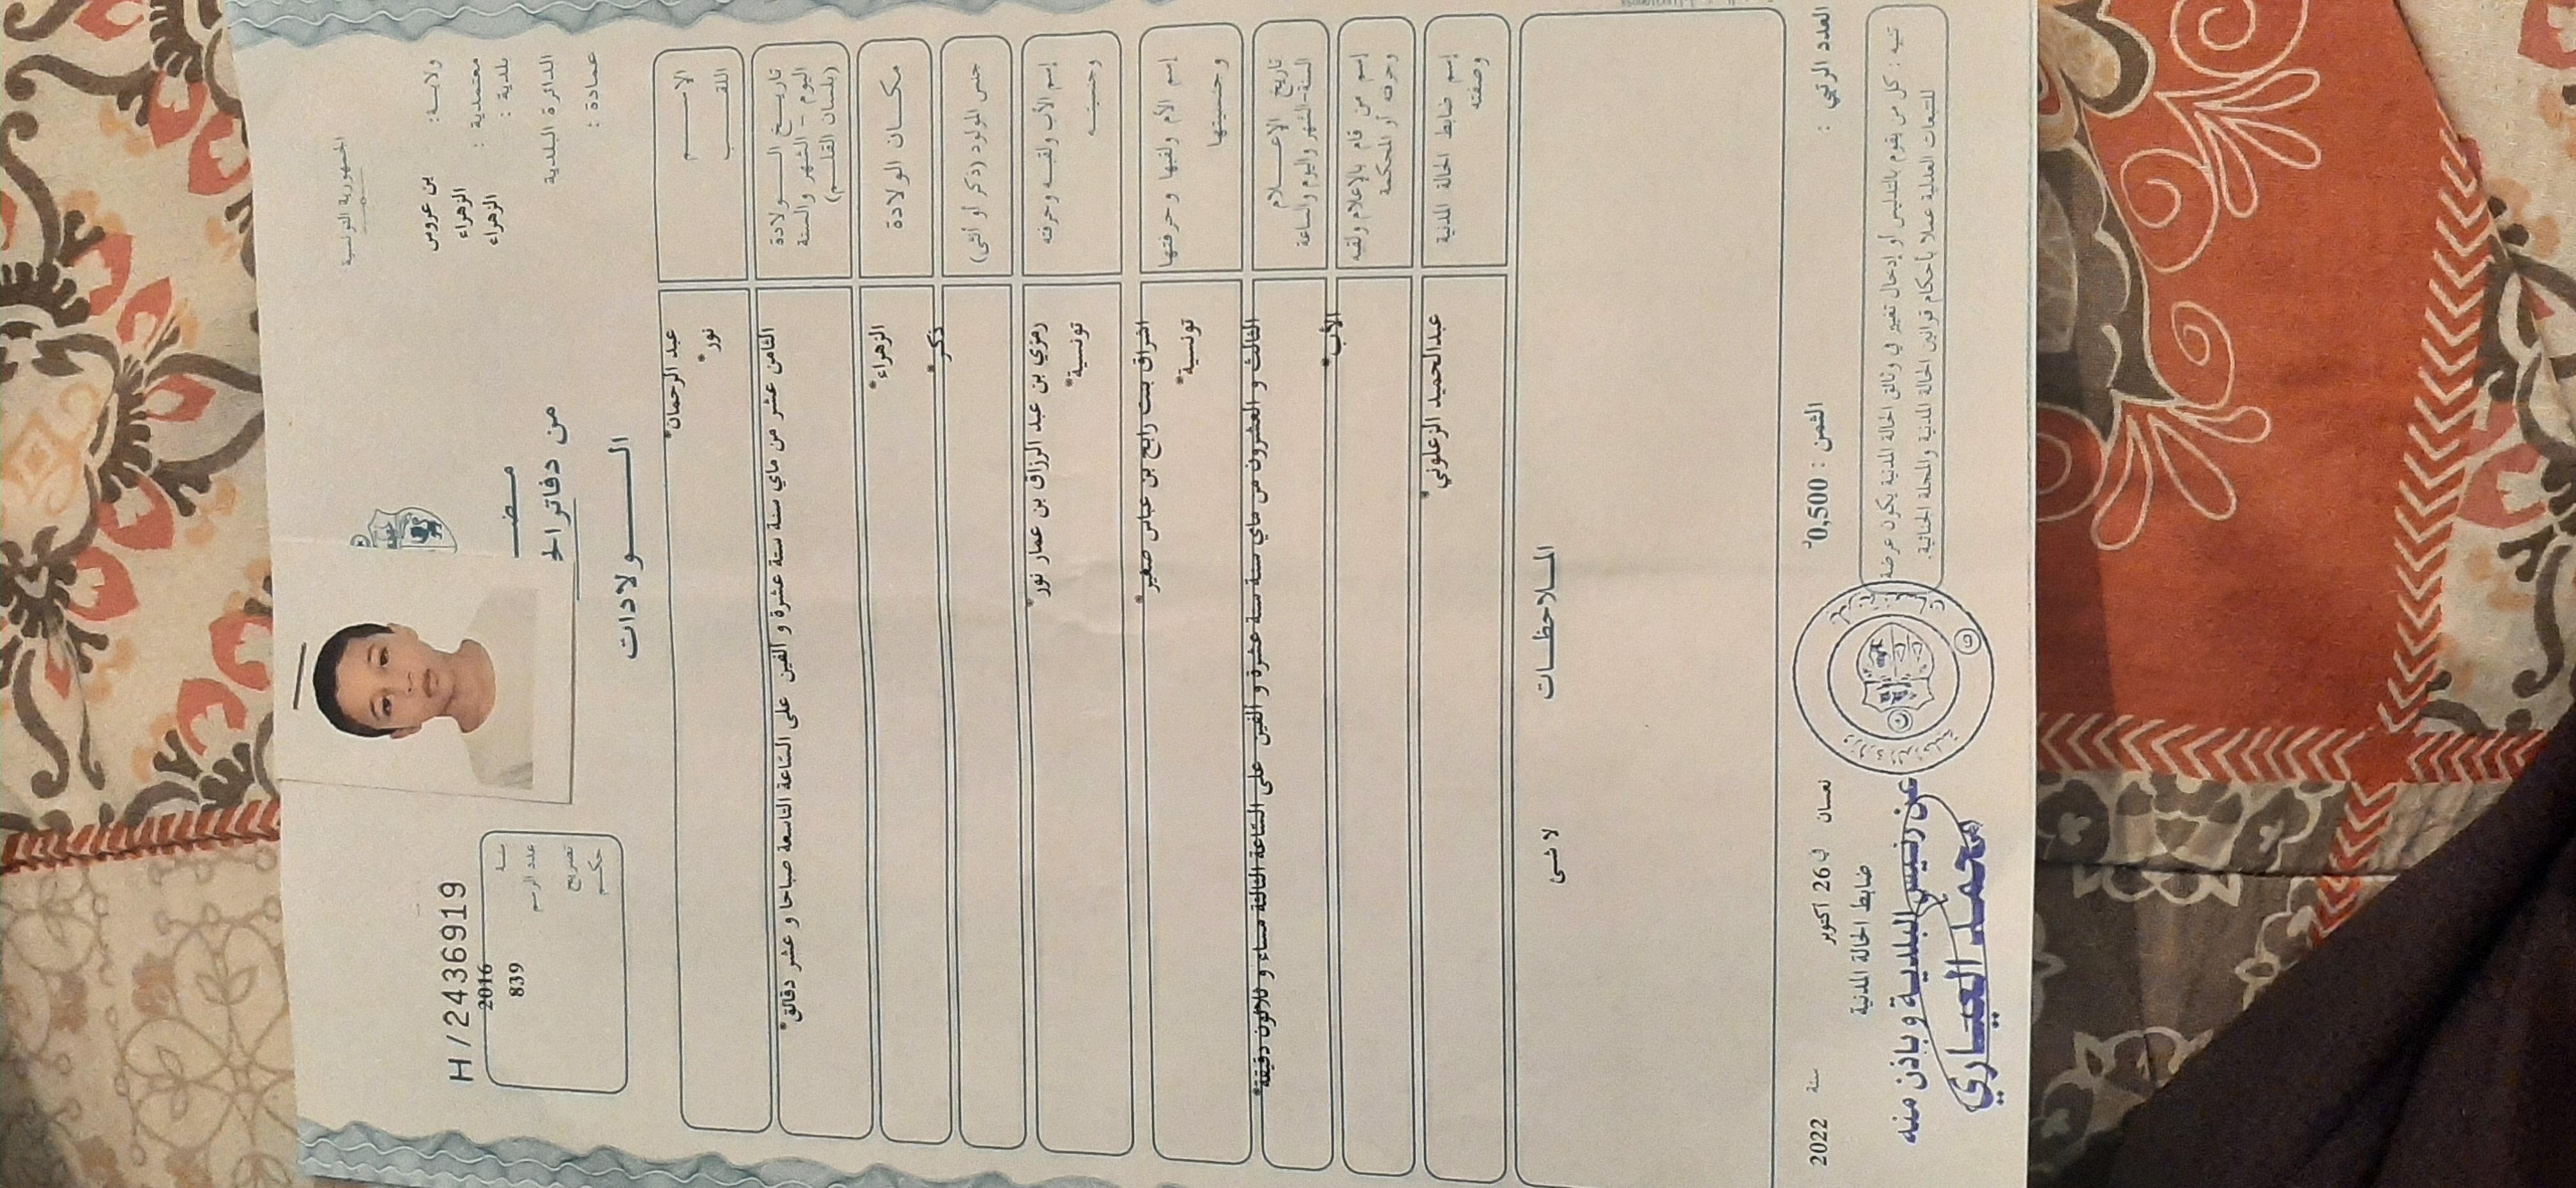 الجمهورية التونسية
H/2436919
ولاية: بن عروس
معتمدية : الزهراء
بلدية : الزهراء
الدائرة البلدية
عمادة :
سنة 2016
عدد الرسم 839
تصريح
حكم
مضـ
من دفاتر الحـ
الـــولادات
الإســـم
عبد الرحمان*
اللقـــب
نور*
تاريــخ الـــولادة
اليوم - الشهر والسنة
(بلسان القلـــم)
الثامن عشر من ماي سنة ستة عشرة و الفين على الساعة التاسعة صباحا و عشر دقائق*
مكـــان الولادة
الزهراء*
جنس المولود (ذكر أو أنثى)
ذكر*
إسم الأب ولقبـــه وحرفته
وجنسيتـــه
رمزي بن عبد الرزاق بن عمار نور*
تونسية*
إسم الأم ولقبها وحرفتها
وجنسيتها
اشراق بنت رابح بن عباس صغير*
تونسية*
تاريخ الإعـــلام
السنة-الشهر واليوم والساعة
الثالث و العشرون من ماي سنة ستة عشرة و الفين على الساعة الثالثة مساء و ثلاثون دقيقة*
إسم من قام بالإعلام ولقبه
وحرفته أو المحكمة
الأب*
إسم ضابط الحالة المدنية
وصفته
عبدالحميد الزعلوني*
المـــلاحظـــات
لا شئ
العدد الرتبي :
الثمن : 0,500د
نعسان في 26 اكتوبر سنة 2022
تنبيه : كل من يقوم بالتدليس أو إدخال تغيير في وثائق الحالة المدنية يكون عرضة
للتتبعات العدلية عملا بأحكام قوانين الحالة المدنية والمجلة الجنائية.
ضابط الحالة المدنية
عن رئيس البلدية وباذن منه
محمد العياري